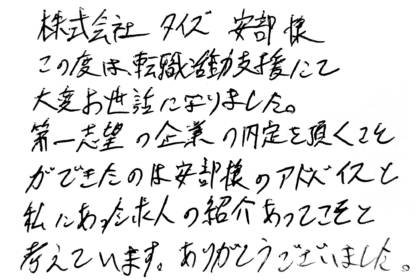 株式会社 タイズ 安部様
この度は、転職活動支援にて
大変お世話になりました。
第一志望の企業の内定を頂くこと
ができたのは安部様のアドバイスと
私にあった求人の紹介あってこそと
考えています。ありがとうございました。